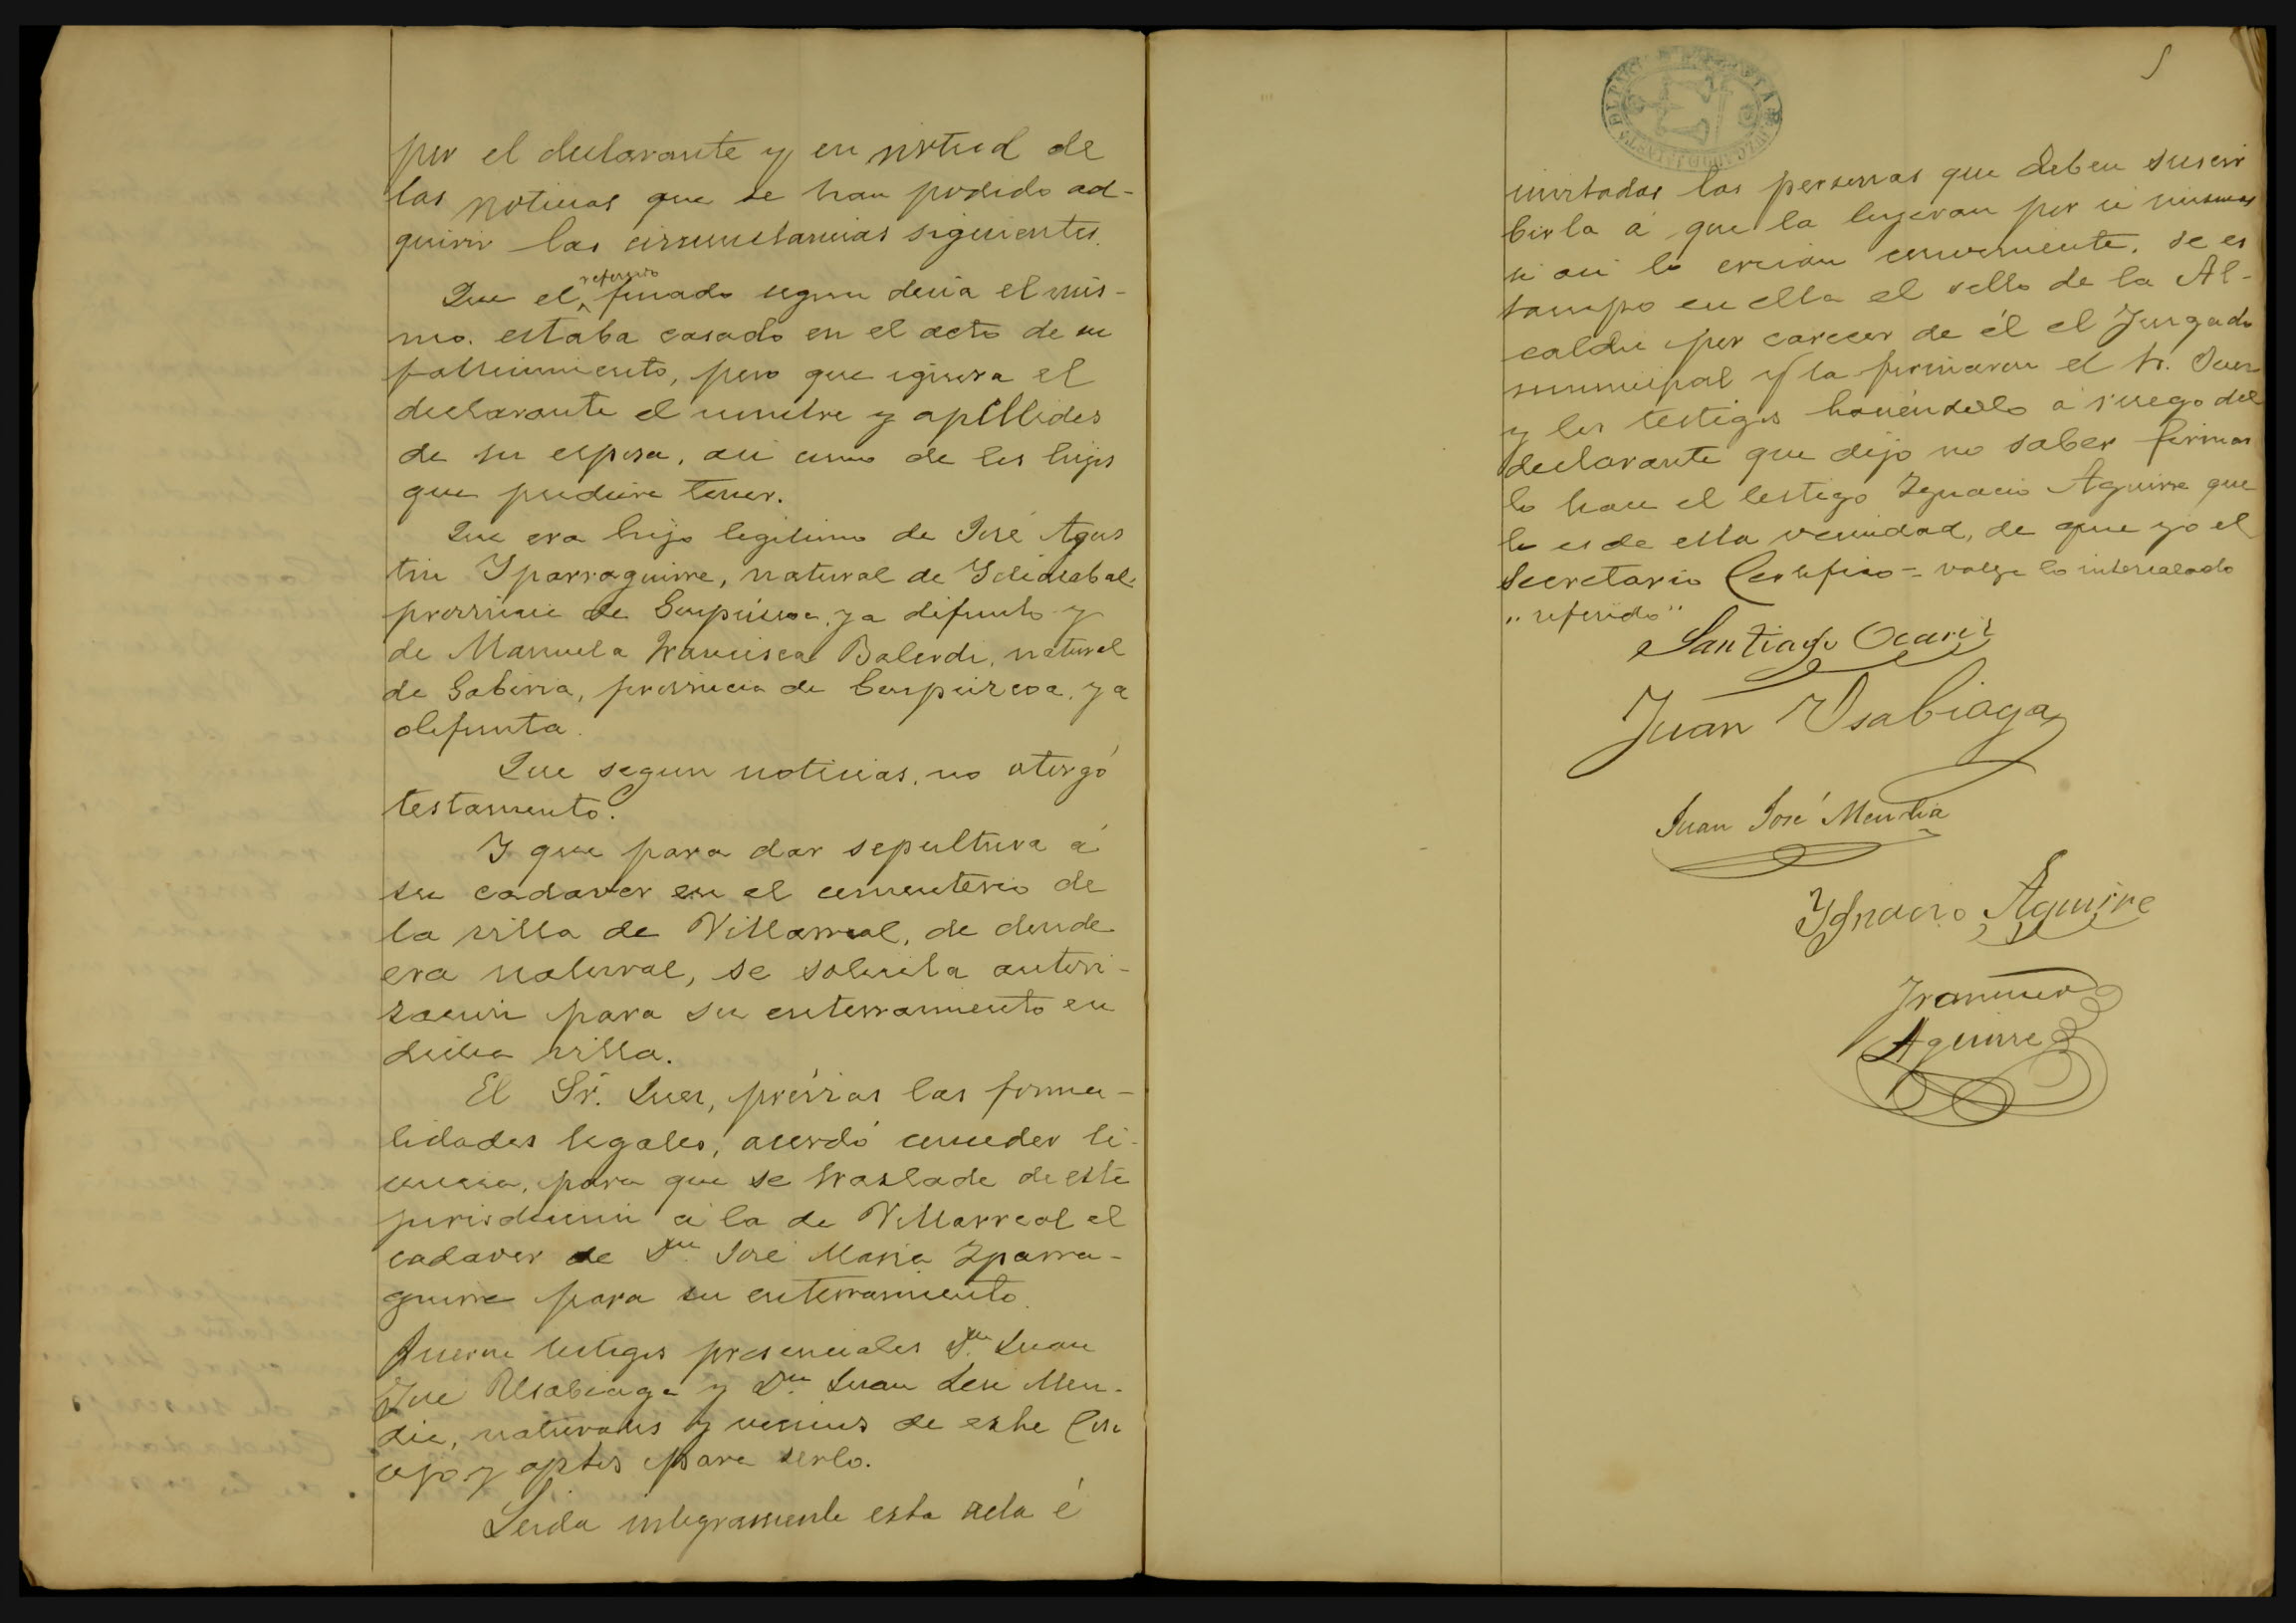 por el declarante y en virtud de
las noticias que se han podido ad-
quirir las circunstancias siguientes.
referido
Que el finado segun decia el mis-
mo, estaba casado en el acto de su
fallecimiento, pero que ignora el
declarante el nombre y apellidos
de su esposa, asi como de los hijos
que pudiera tener.
Que era hijo legitimo de José Agus
tin Yparraguirre, natural de Ydiazabal,
provincia de Guipúzcoa, ya difunto y
de Manuela Francisca Balerdi, natural
de Gabiria, provincia de Guipúzcoa, ya
difunta.
Que segun noticias, no otorgó
testamento.
Y que para dar sepultura á
su cadaver en el cementerio de
la villa de Villarreal, de donde
era natural, se solicita autori-
zacion para su enterramiento en
dicha villa.
El Sr. Juez, prévias las forma-
lidades legales, acordó conceder li-
cencia, para que se traslade de esta
jurisdiccion á la de Villarreal el
cadaver de Dn. José Maria Yparra-
guirre para su enterramiento.
Fueron testigos presenciales Dn. Juan
José Usabiaga y Dn. Juan José Men-
dia, naturales y vecinos de este Con
cejo y aptos para serlo.
Leida integramente esta acta é
5
invitadas las personas que deben suscri
birla á que la leyeran por si mismas
si asi lo creian conveniente, se es
tampó en ella el sello de la Al-
caldia por carecer de él el Juzgado
municipal y la firmaron el Sr. Juez
y los testigos haciéndolo á ruego del
declarante que dijo no saber firmar
lo hace el testigo Ygnacio Aguirre que
lo es de esta vecindad, de que yo el
Secretario Certifico = valga lo intercalado
"referido"
Santiago Ocariz
Juan Usabiaga
Juan José Mendia
Ygnacio Aguirre
Francisco
Aguirre